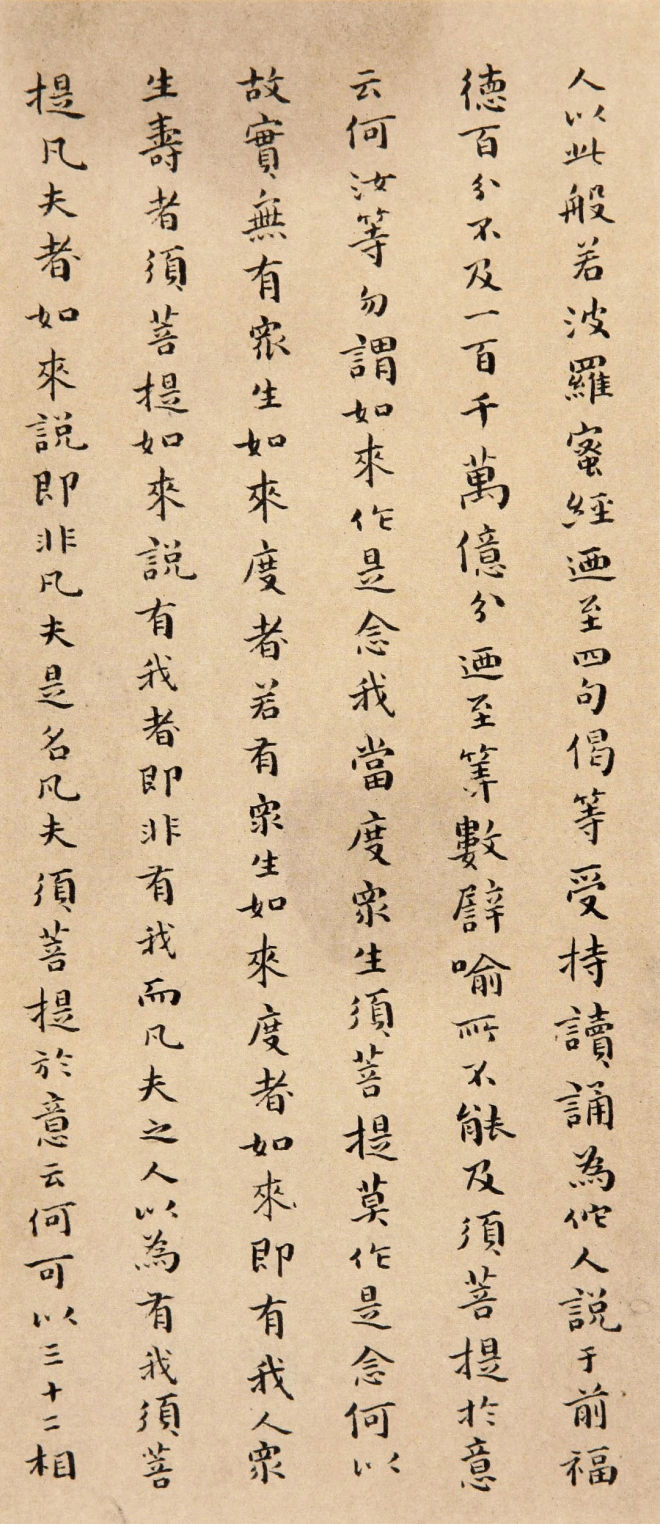 人以此般若波羅蜜經迺至四句偈等受持讀誦為佗人説于前福
徳百分不及一百千萬億分迺至筭數譬喻所不能及須菩提於意
云何汝等勿謂如來作是念我當度衆生須菩提莫作是念何以
故實無有衆生如來度者若有衆生如來度者如來即有我人衆
生壽者須菩提如來説有我者即非有我而凡夫之人以為有我須菩
提凡夫者如來説即非凡夫是名凡夫須菩提於意云何可以三十二相